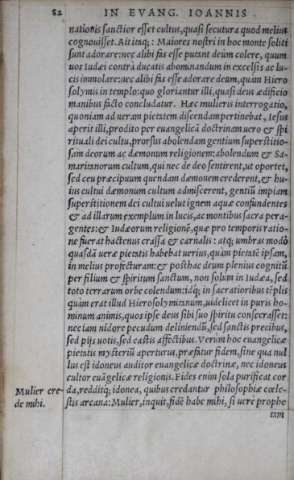 82 IN EVANG. IOANNIS
nationis sanctior esset cultus, quasi secutura quod melius
cognouisset. Ait inq;: Maiores nostri in hoc monte soliti
sunt adorare: nec alibi fas esse putant deum colere, quum
uos iudæi contra ducatis abominandum in excelsis ac lu-
cis immolare: nec alibi fas esse adorare deum, quàm Hiero
solymis in templo: quo gloriantur illi, quasi deus ædificio
manibus facto concludatur. Hæc mulieris interrogatio,
quoniam ad ueram pietatem discendam pertinebat, Iesus
aperit illi, prodito per euangelicā doctrinam uero & spi
rituali dei cultu, prorsus abolendam gentium superstitio-
sam deorum ac dæmonum religionem: abolendum & Sa-
maritanorum cultum, qui nec de deo sentirent, ut oportet,
sed ceu præcipuum quendam dæmonē uererent, & hu-
ius cultui dæmonum cultum admiscerent, gentiū impiam
superstitionem dei cultui uelut ignem aquæ confundentes
& ad illarum exemplum in lucis, ac montibus sacra pera-
gentes: & Iudæorum religionē, quæ pro temporis ratio
ne fuerat hactenus crassa & carnalis: atq; umbras modò
quasdā ueræ pietatis habebat uerius, quàm pietatē ipsam,
in melius profecturam: & posthac deum plenius cognitū
per filium & spiritum sanctum, non solum in Iudæa, sed
toto terrarum orbe colendum: idq; in sacratioribus tēplis
quàm erat illud Hierosolymitanum, uidelicet in puris ho-
minum animis, quos ipse deus sibi suo spiritu consecrasset:
nec iam nidore pecudum deliniendū, sed sanctis precibus,
sed pijs uotis, sed castis affectibus. Verùm hoc euangelicæ
pietatis mysteriū aperturus, præfatur fidem, sine qua nul
lus est idoneus auditor euangelicæ doctrinæ, nec idoneus
cultor euāgelicæ religionis. Fides enim sola purificat cor
Mulier cre-
de mihi.
da, redditq; idonea, quibus credantur philosophiæ cœle-
stis arcana: Mulier, inquit, fidē habe mihi, si uerè prophe
tam